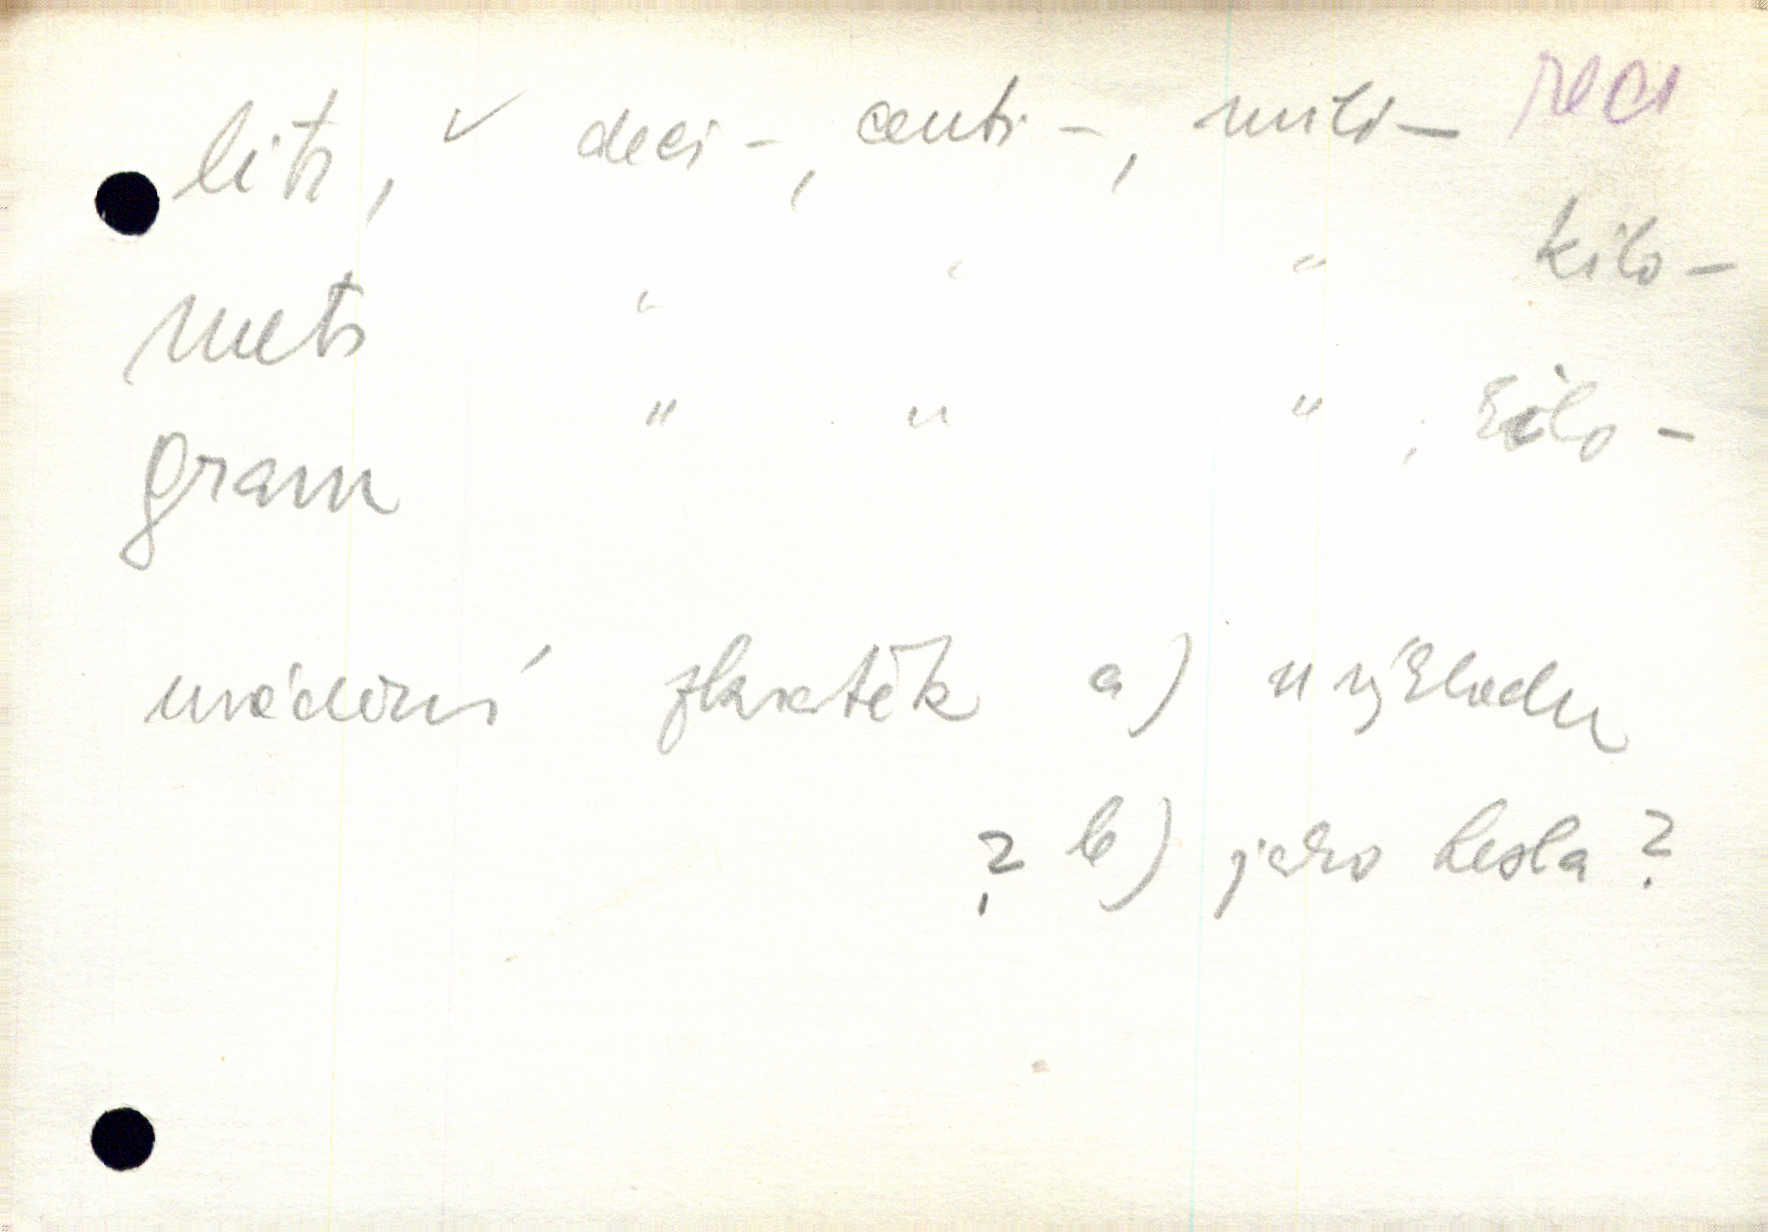 litr, ✓ deci -, centi -, mili - reci
metr " " " kilo -
gram " " " , kilo -
uvádění zkratek a) u výkladu
? b) jako hesla ?